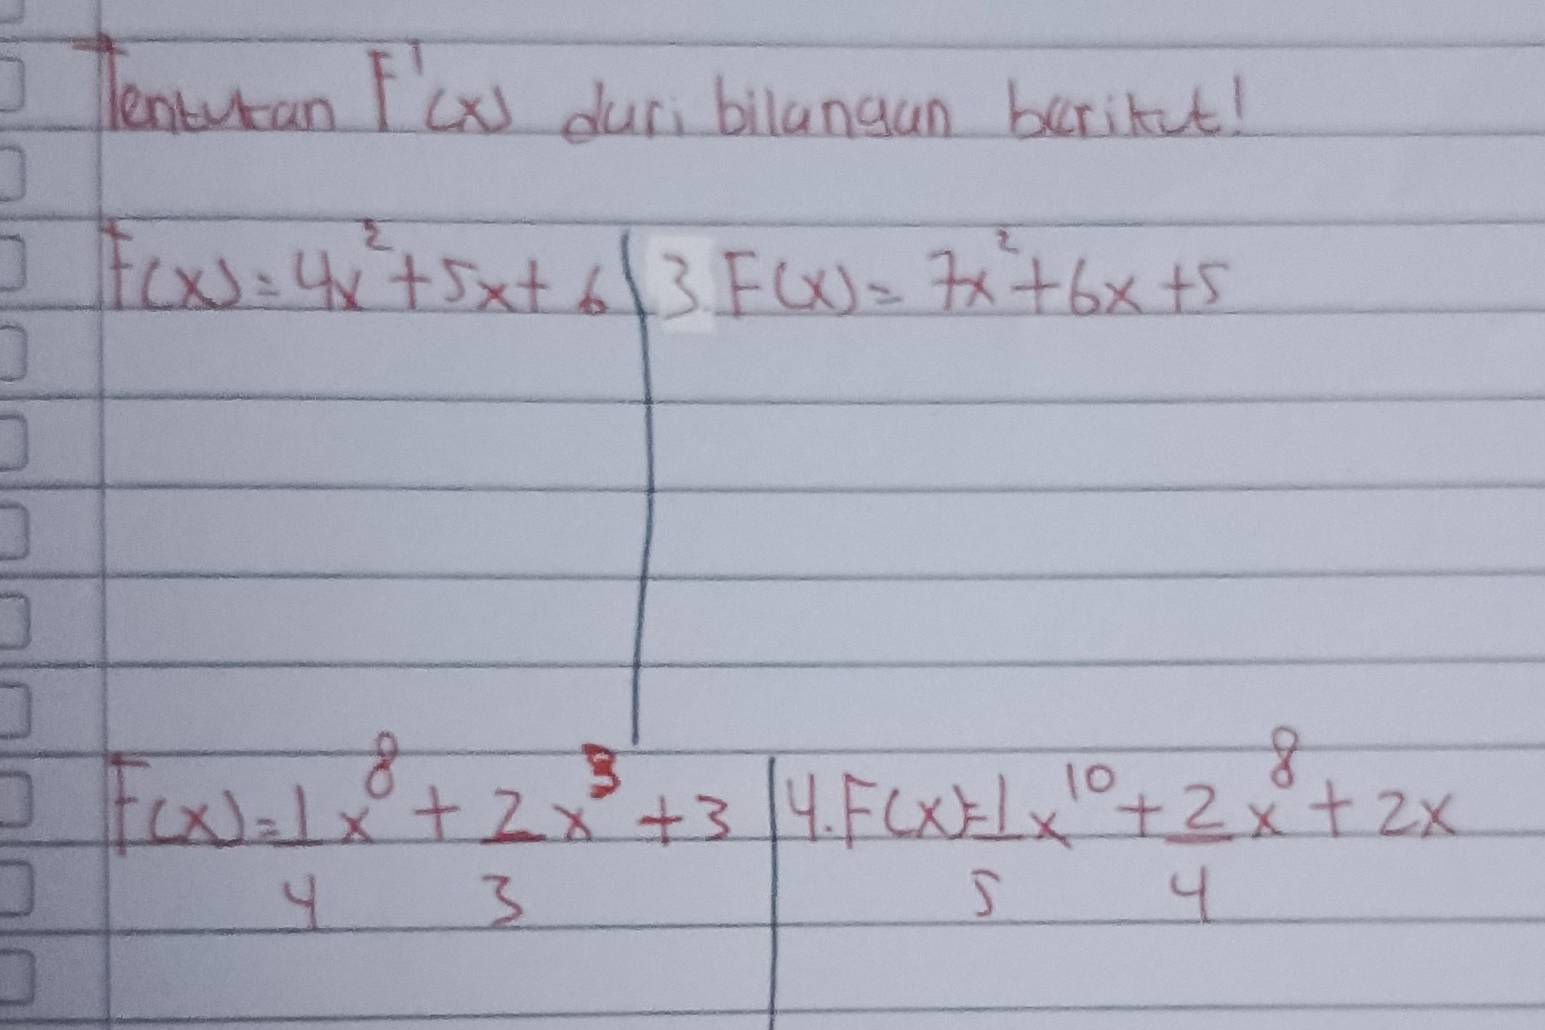 Tentukan F'(x) dari bilangan berikut!
F(x) = 4x² + 5x + 6
3. F(x) = 7x² + 6x + 5
F(x) = 1/4 x⁸ + 2/3 x³ + 3
4. F(x) = 1/5 x¹⁰ + 2/4 x⁸ + 2x